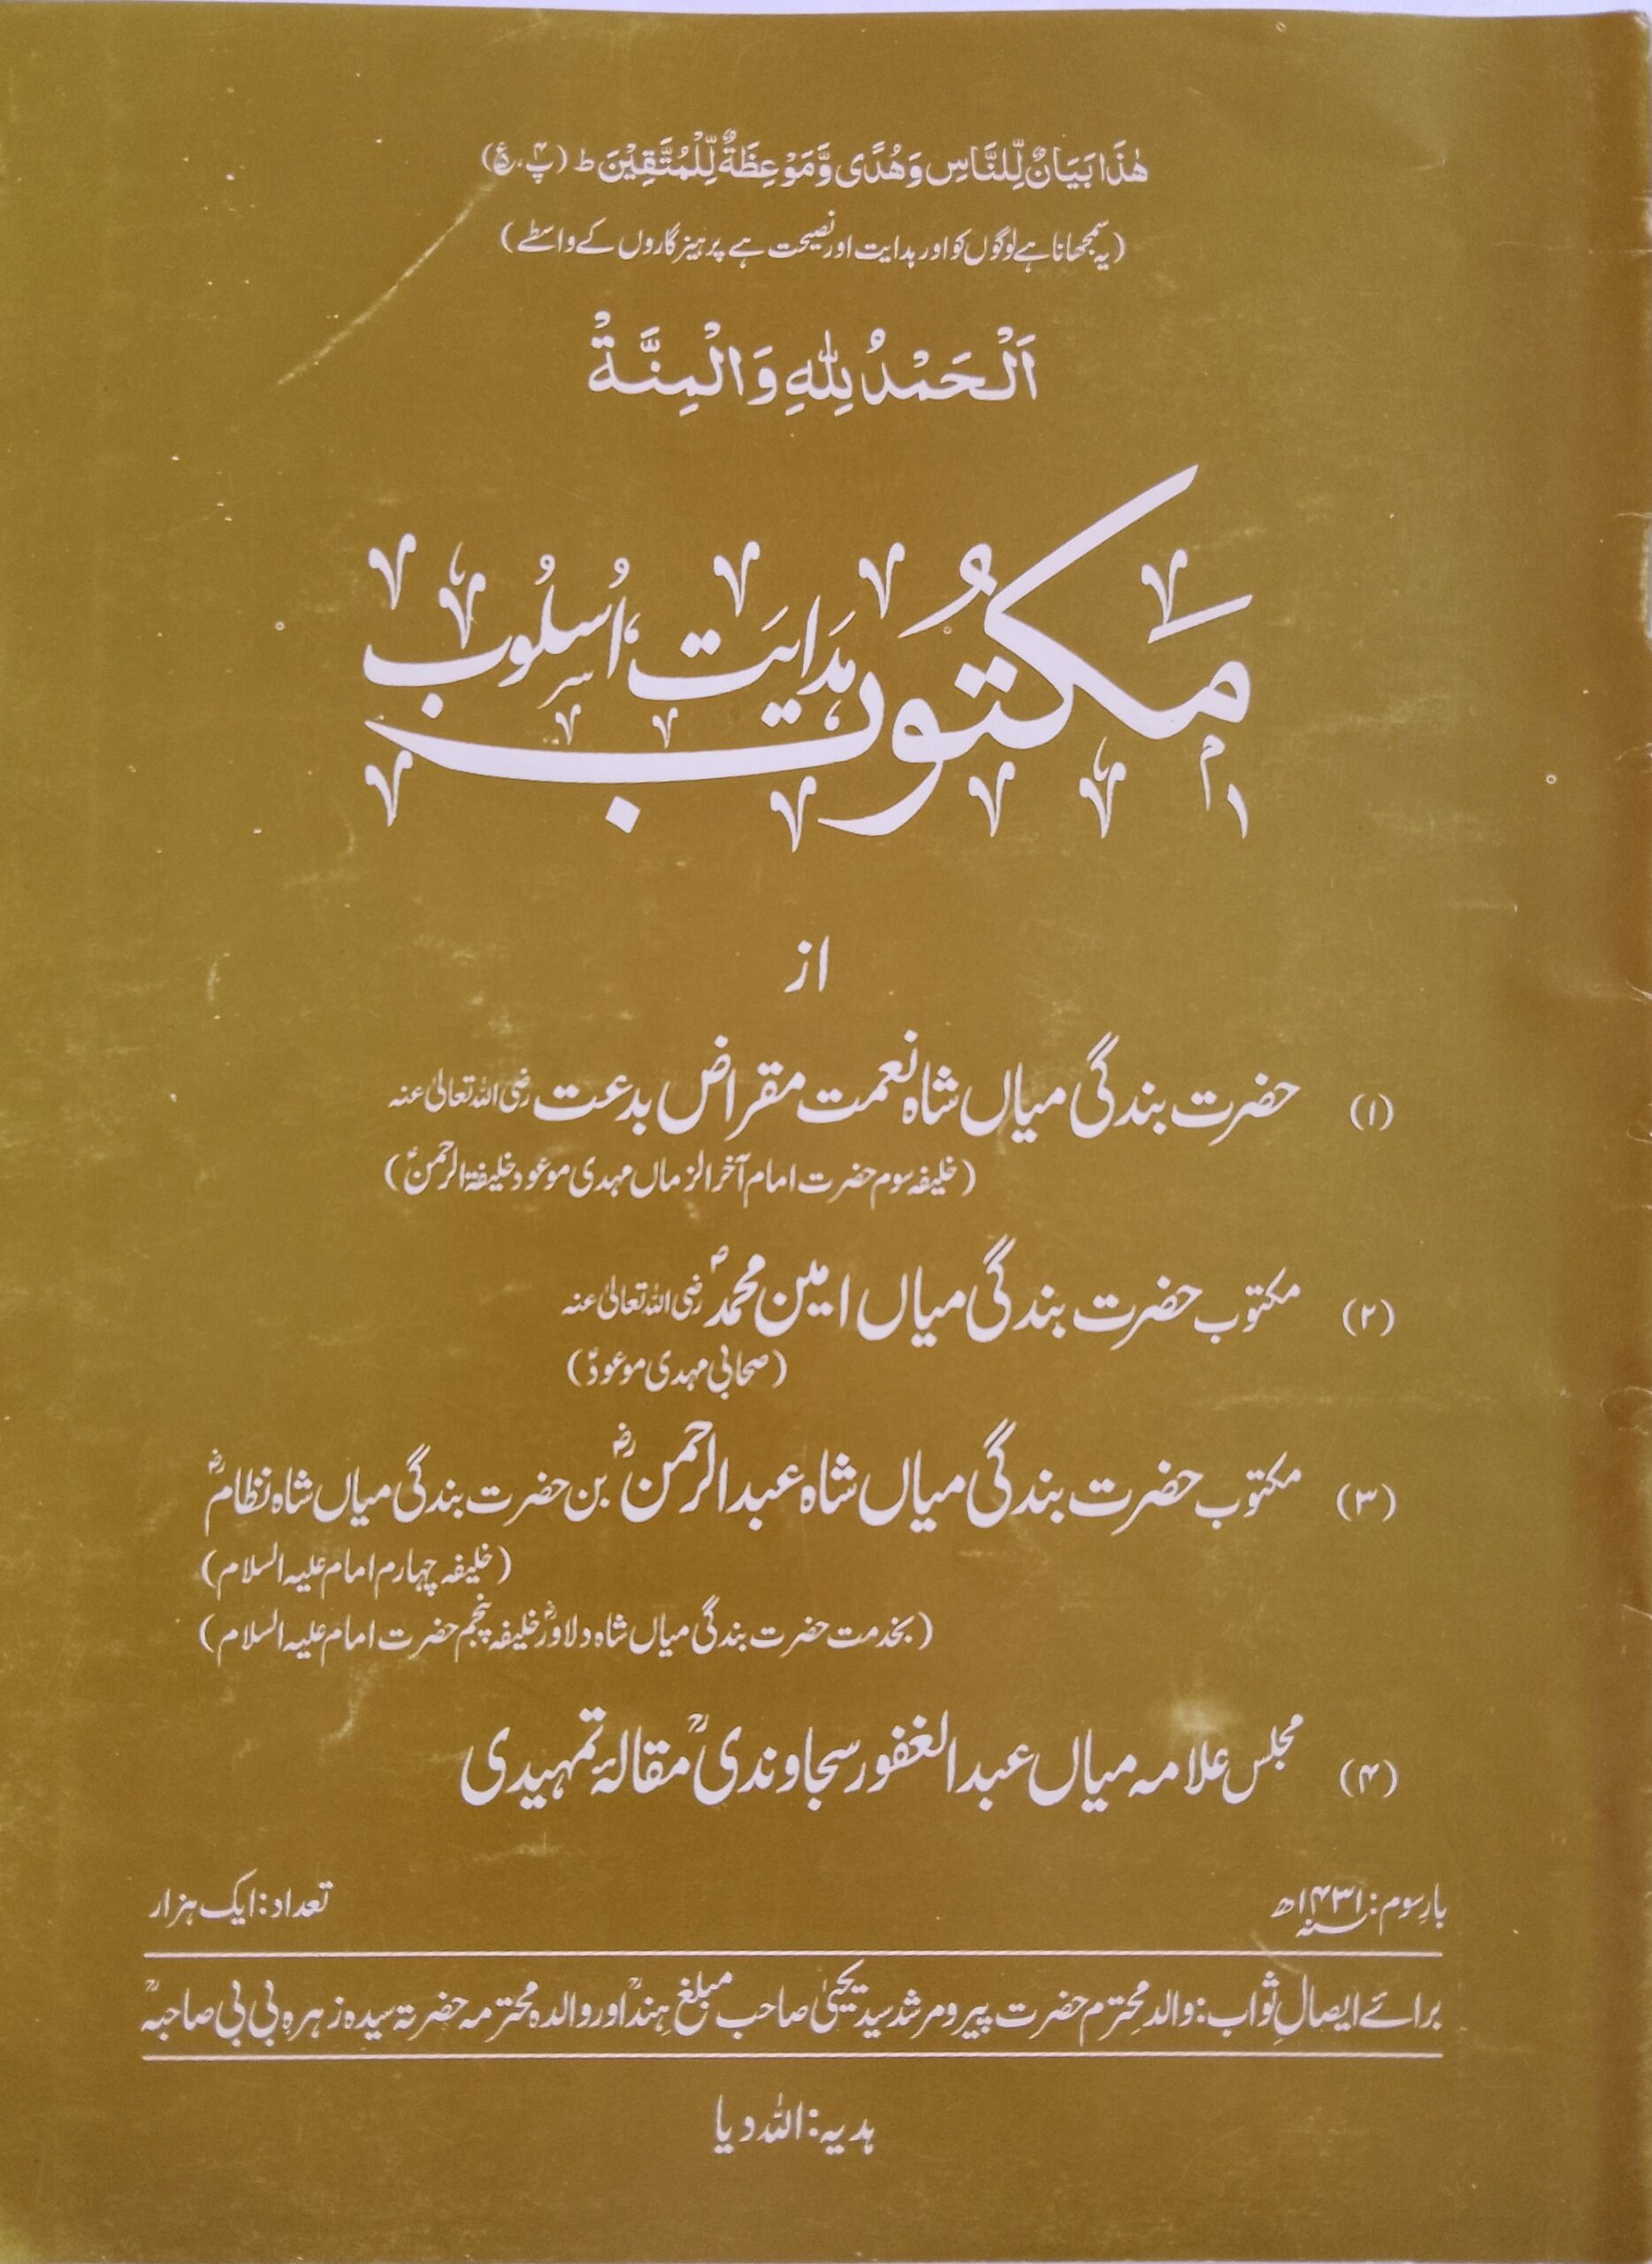 هٰذَا بَيَانٌ لِّلنَّاسِ وَهُدًى وَّمَوْعِظَةٌ لِّلْمُتَّقِيْنَ ط (پ۴، ع۵)
(یہ سمجھانا ہے لوگوں کو اور ہدایت اور نصیحت ہے پرہیزگاروں کے واسطے)
اَلْحَمْدُ لِلّٰهِ وَالْمِنَّةْ
مَکتُوب ہدَایَت اُسلُوب
از
(۱) حضرت بندگی میاں شاہ نعمت مقراض بدعت رضی اللہ تعالیٰ عنہ
(خلیفہ سوم حضرت امام آخر الزماں مہدی موعود خلیفۃ الرحمنؑ)
(۲) مکتوب حضرت بندگی میاں امین محمدؐ رضی اللہ تعالیٰ عنہ
(صحابی مہدی موعودؑ)
(۳) مکتوب حضرت بندگی میاں شاہ عبدالرحمنؓ بن حضرت بندگی میاں شاہ نظامؓ
(خلیفہ چہارم امام علیہ السلام)
(بخدمت حضرت بندگی میاں شاہ دلاورؓ خلیفہ پنجم حضرت امام علیہ السلام)
(۴) مجلس علامہ میاں عبدالغفور سجاوندیؒ مقالۂ تمہیدی
بارِ سوم: ۱۴۳۱ھ تعداد: ایک ہزار
برائے ایصالِ ثواب: والد محترم حضرت پیر و مرشد سید یحییٰ صاحب مبلغ ہندؒ اور والدہ محترمہ حضرتہ سیدہ زہرہ بی بی صاحبہؒ
ہدیہ: اللہ دیا